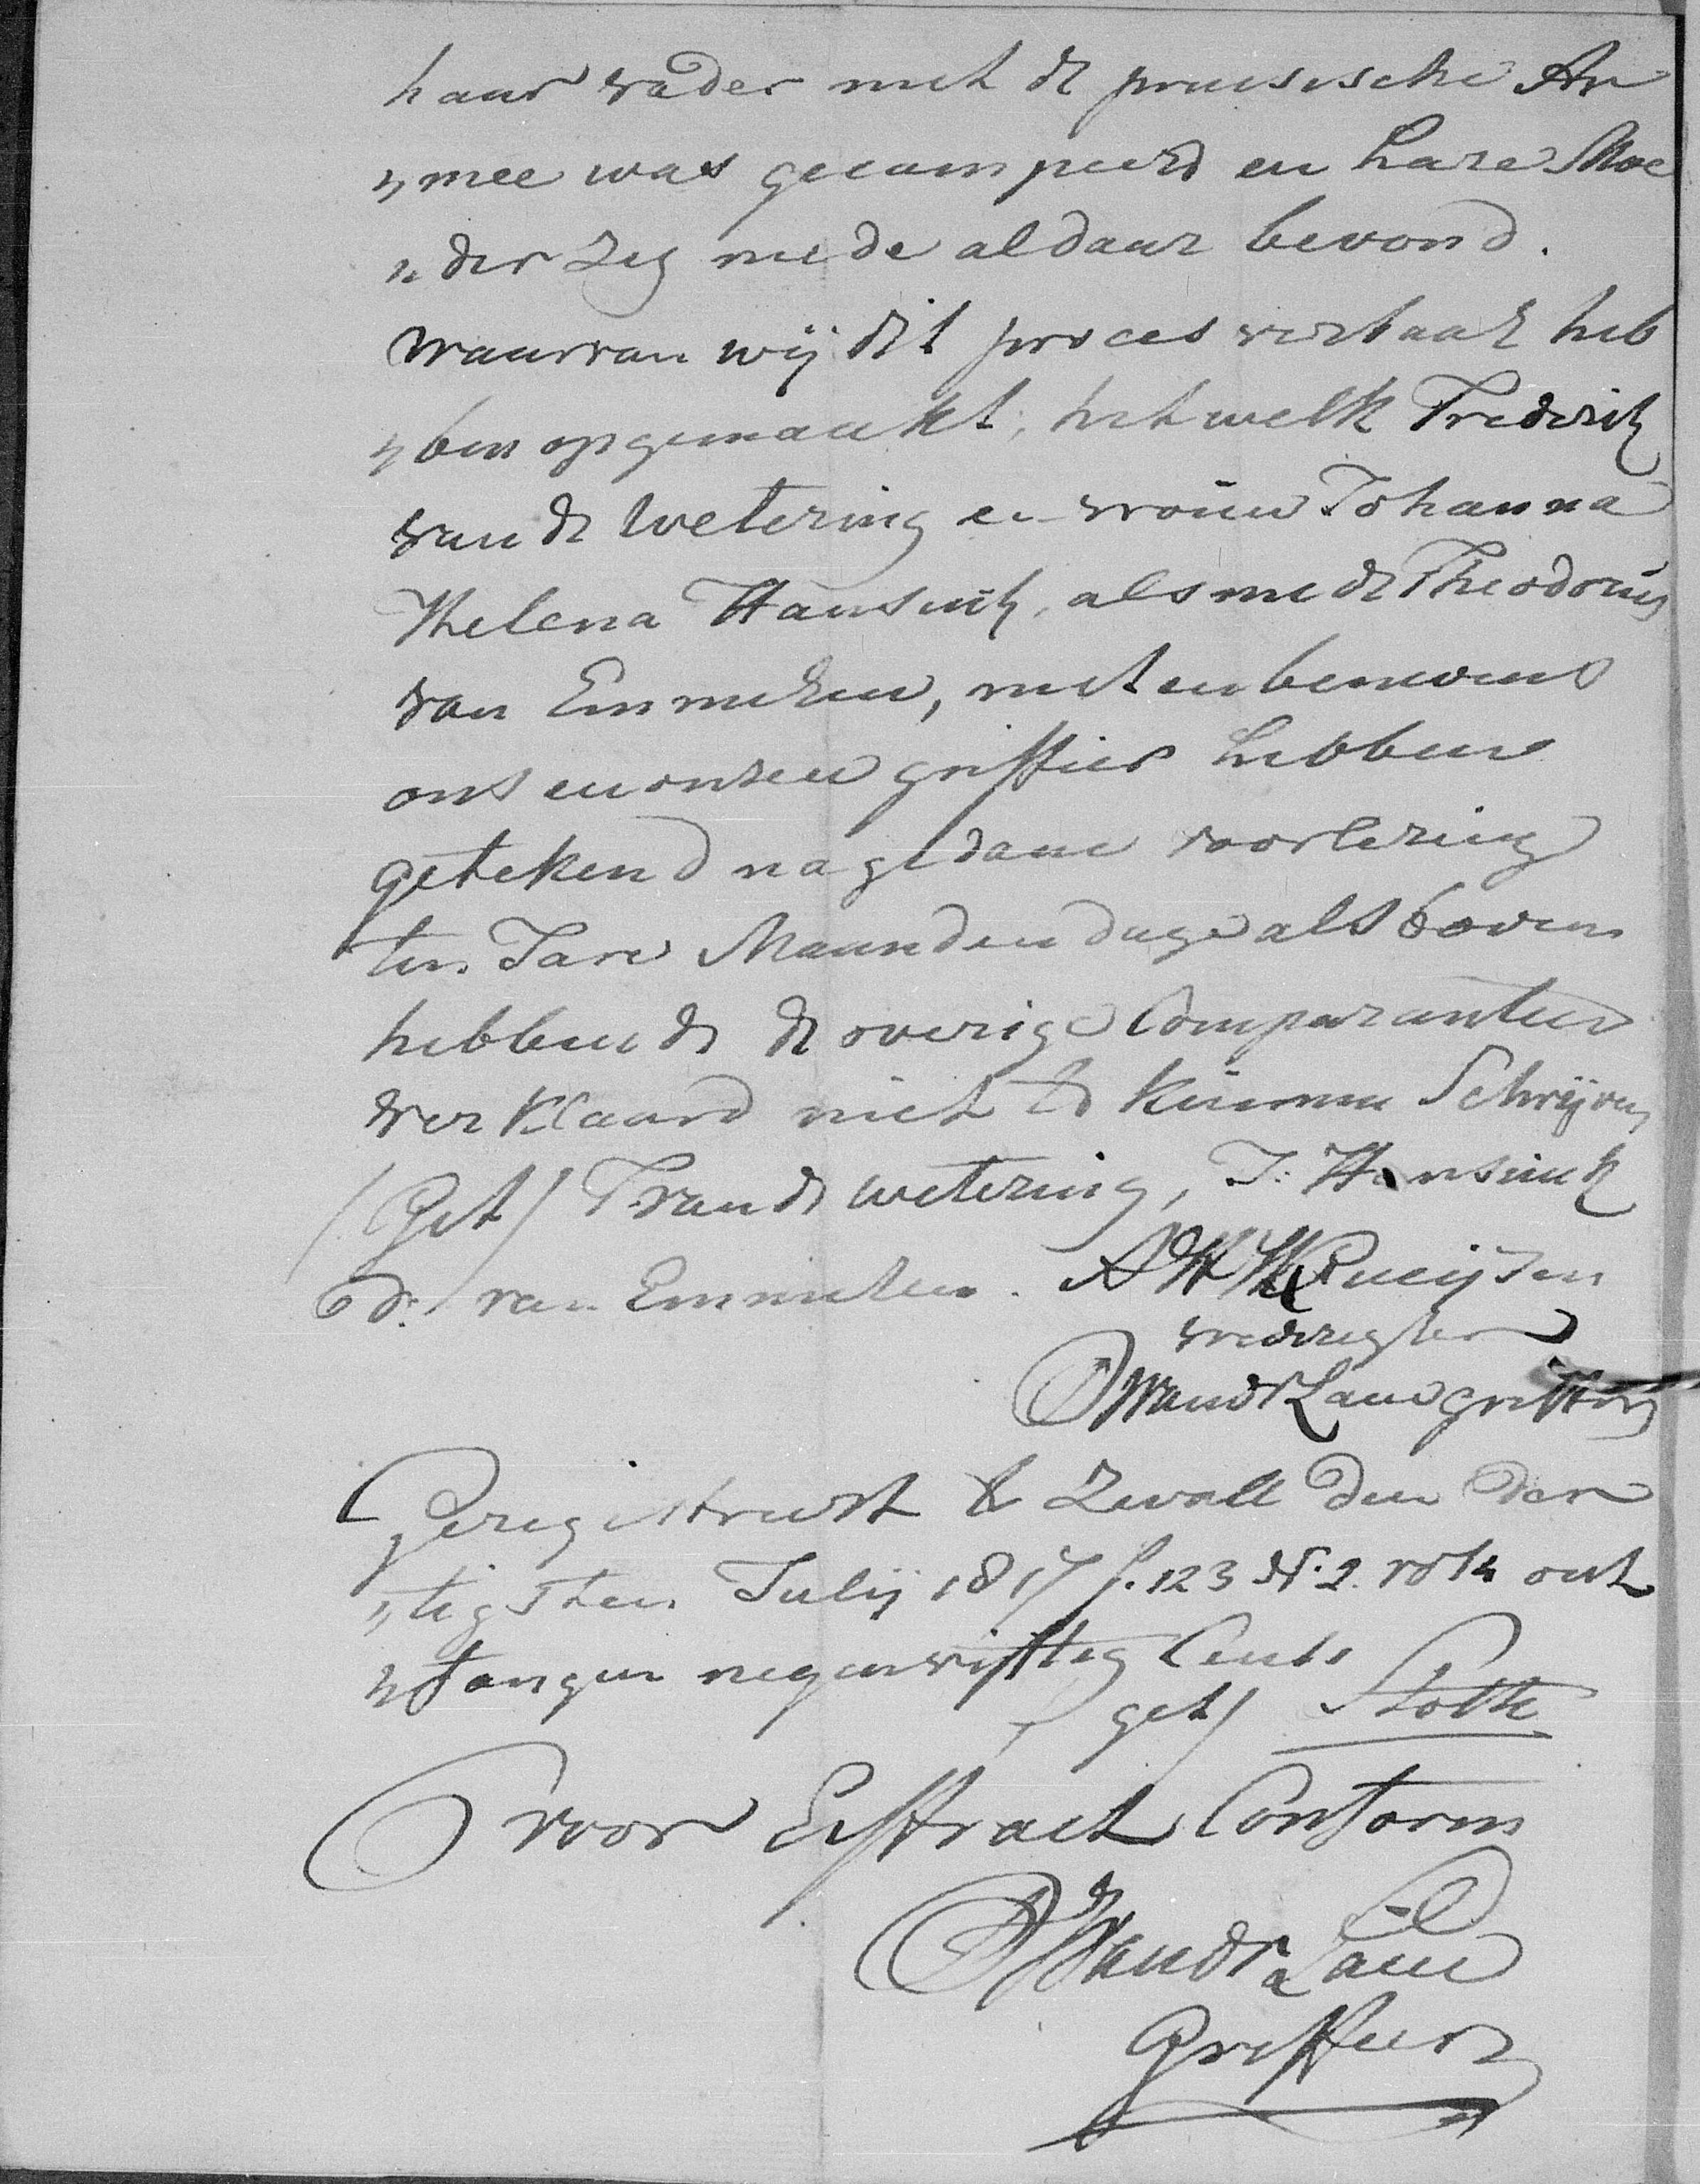 haar vader met de pruisische Ar
„mee was gecampeerd en hare Moe
„der zig mede aldaar bevond.
Waarvan wij dit proces verbaal heb
„ben opgemaakt, het welk Frederik
van de Wetering en vrouw Johanna
Helena Hansink, als mede Theodorus
van Emmeken, met en benevens
ons en onzen griffier hebben
getekend na gedane voorlezing
ten Jare Maand en dage als boven
hebbende de overige Comparanten
verklaard niet te kunnen Schrijven
(Get) F van de Wetering, J: Hansink
d: van Emmeken.
vrederegter
van der Laan griffier
Geregistreert te Zwolle den der
„tigsten Julij 1817 f. 123 N. 2. ont
„fangen negenvijftig Cents
(get) Stolte
voor Extract Conform
van der Laan
Griffier